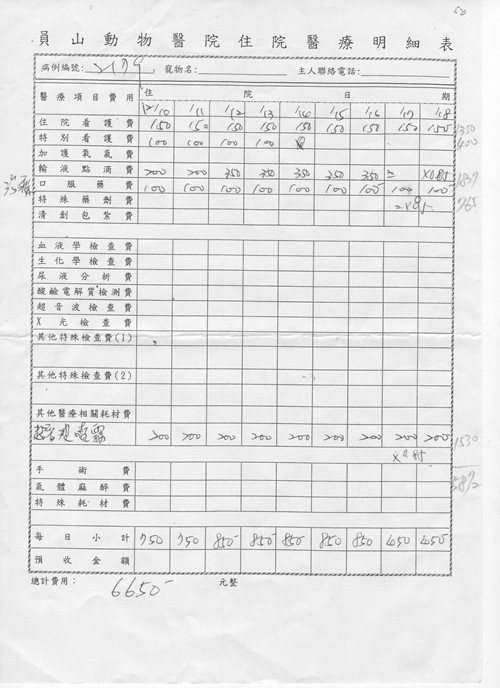 50
員山動物醫院住院醫療明細表
病例編號: 寵物名: 主人聯絡電話:
醫療項目費用 住院日期
12/10 11 12 13 14 15 16 17 18
住院看護費 150 150 150 150 150 150 150 150 150 1350
特別看護費 100 100 100 100 400
加護氧氣費
輸液點滴費 200 200 350 350 350 350 350 = ×0.85 1837
口服藥費 100 100 100 100 100 100 100 100 100
特殊藥劑費 = ×0.85 765
清創包紮費
血液學檢查費
生化學檢查費
尿液分析費
酸鹼電解質檢測費
超音波檢查費
X光檢查費
其他特殊檢查費(1)
其他特殊檢查費(2)
其他醫療相關耗材費
200 200 200 200 200 200 200 200 200 1530
×0.85
5882
手術費
氣體麻醉費
特殊耗材費
每日小計 750 750 850 850 850 850 850 450 450
預收金額
總計費用: 6650 元整